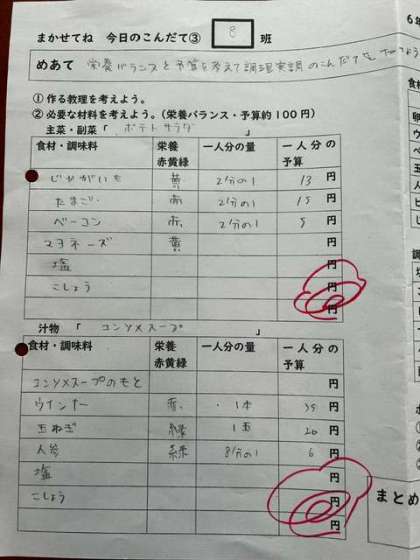 まかせてね 今日のこんだて③ 8 班
めあて 栄養バランスと予算を考えて調理実習のこんだてを
①作る教理を考えよう。
②必要な材料を考えよう。(栄養バランス・予算約100円)
主菜・副菜「 ポテトサラダ 」
食材・調味料 栄養 赤黄緑 一人分の量 一人分の予算
じゃがいも 黄 2分の1 13 円
たまご 赤 2分の1 15 円
ベーコン 赤 2分の1 5 円
マヨネーズ 黄 円
塩 円
こしょう 円
円
汁物「 コンソメスープ 」
食材・調味料 栄養 赤黄緑 一人分の量 一人分の予算
コンソメスープのもと 円
ウインナー 赤 1本 35 円
玉ねぎ 緑 20 円
人参 緑 8分の1 6 円
塩 円
こしょう 円
円
まとめ